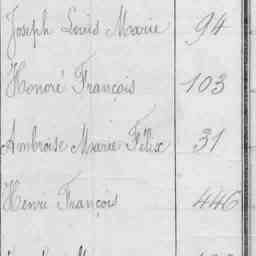 Joseph Louis Marie 94
Honoré François 103
Ambroise Marie Félix 31
Henri François 446